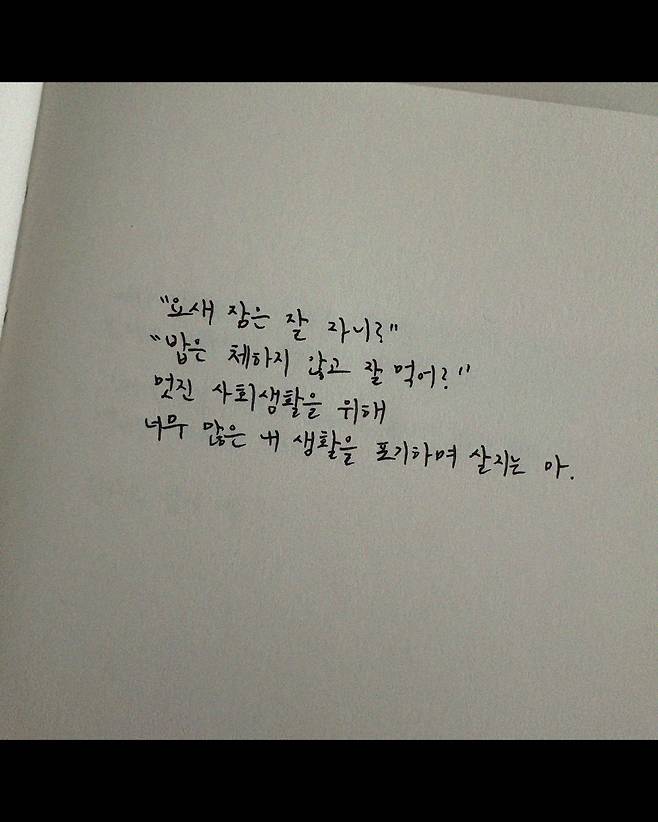 "요새 잠은 잘 자니?"
"밥은 체하지 않고 잘 먹어?"
멋진 사회생활을 위해
너무 많은 내 생활을 포기하며 살지는 마.